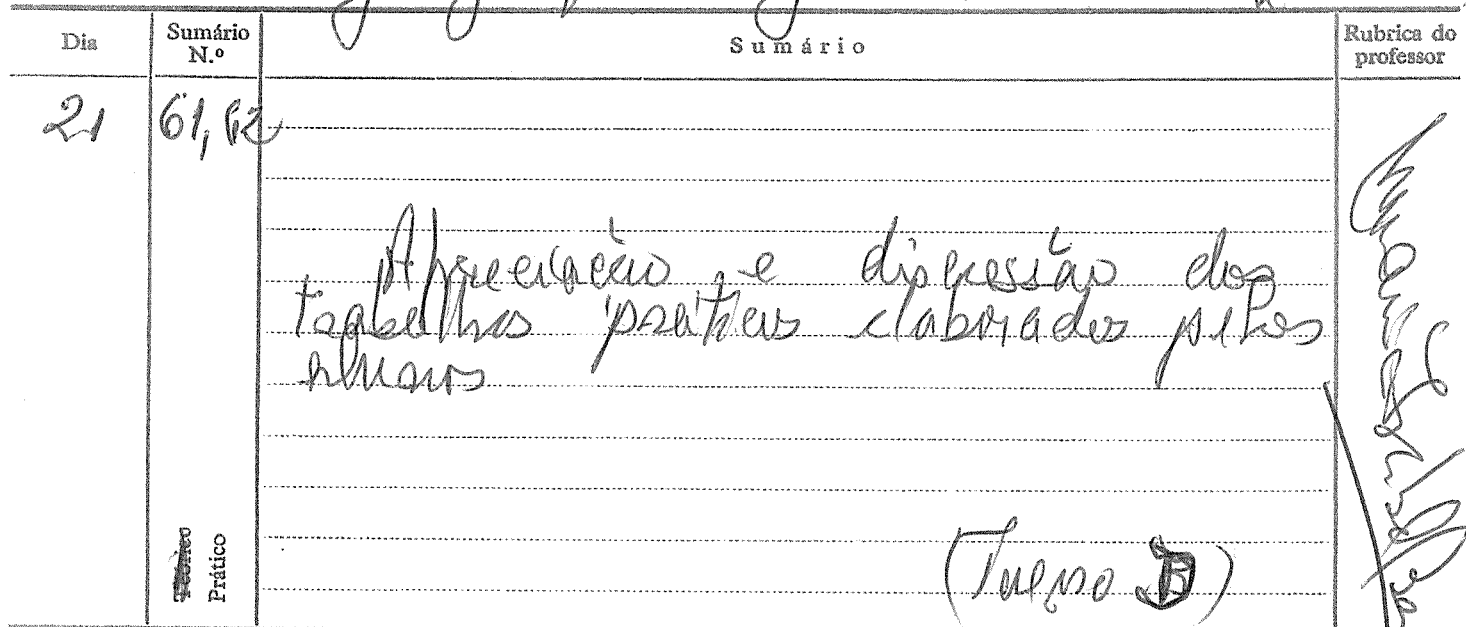 Dia Sumário N.º Sumário Rubrica do professor
21 61, 62
Apreciação e discussão dos
trabalhos práticos elaborados pelos
alunos
Teórico
Prático
(Turno B)